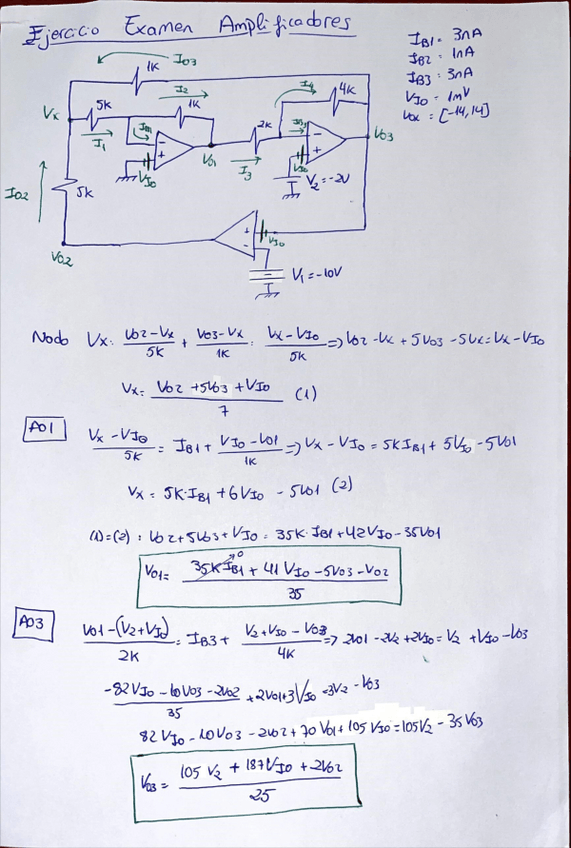 Ejercicio Examen Amplificadores
IB1 = 3nA
IB2 = 1nA
IB3 = 3nA
VIO = 1mV
Vox = [-14,14]
IO3
1K
I2
1K
I4
4K
Vx
5K
I1
IB1
- +
VIO
VO1
2K
I3
IB3
- +
VIO
VO3
V2 = -2V
IO2
5K
VO2
+ -
VIO
V1 = -10V
Nodo Vx: (VO2-Vx)/5K + (VO3-Vx)/1K = (Vx-VIO)/5K => VO2 - Vx + 5VO3 - 5Vx = Vx - VIO
Vx = (VO2 + 5VO3 + VIO)/7 (1)
AO1
(Vx - VIO)/5K = IB1 + (VIO - VO1)/1K => Vx - VIO = 5K IB1 + 5VIO - 5VO1
Vx = 5K·IB1 + 6VIO - 5VO1 (2)
(1)=(2): VO2 + 5VO3 + VIO = 35K·IB1 + 42VIO - 35VO1
VO1 = (35K·IB1 + 41VIO - 5VO3 - VO2)/35
0
AO3
(VO1 - (V2+VIO))/2K = IB3 + (V2+VIO - VO3)/4K => 2VO1 - 2V2 + 2VIO = V2 + VIO - VO3
(-82VIO - 10VO3 - 2VO2)/35 + 2VO1 + 3VIO = 3V2 - VO3
82VIO - 10VO3 - 2VO2 + 70VO1 + 105VIO = 105V2 - 35VO3
VO3 = (105V2 + 187VIO + 2VO2)/25